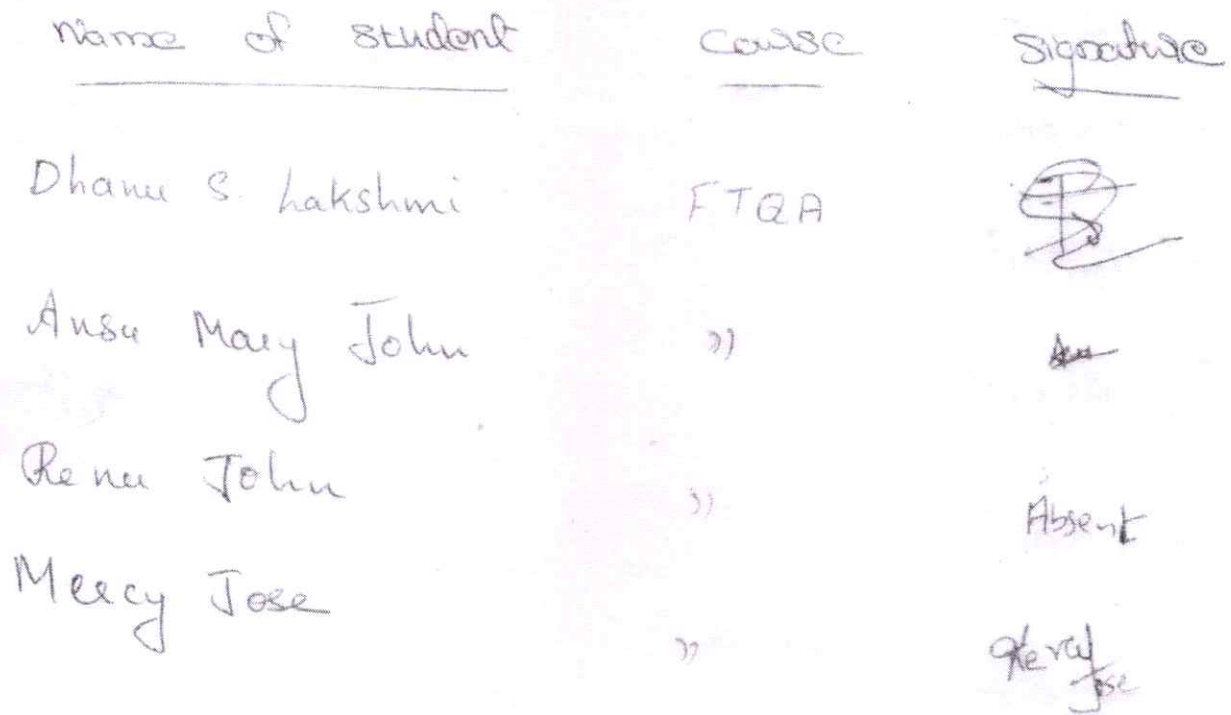 Name of Student Course Signature
Dhanu S. Lakshmi FTQA
Ansu Mary John "
Renu John " Absent
Mercy Jose " Mercy Jose